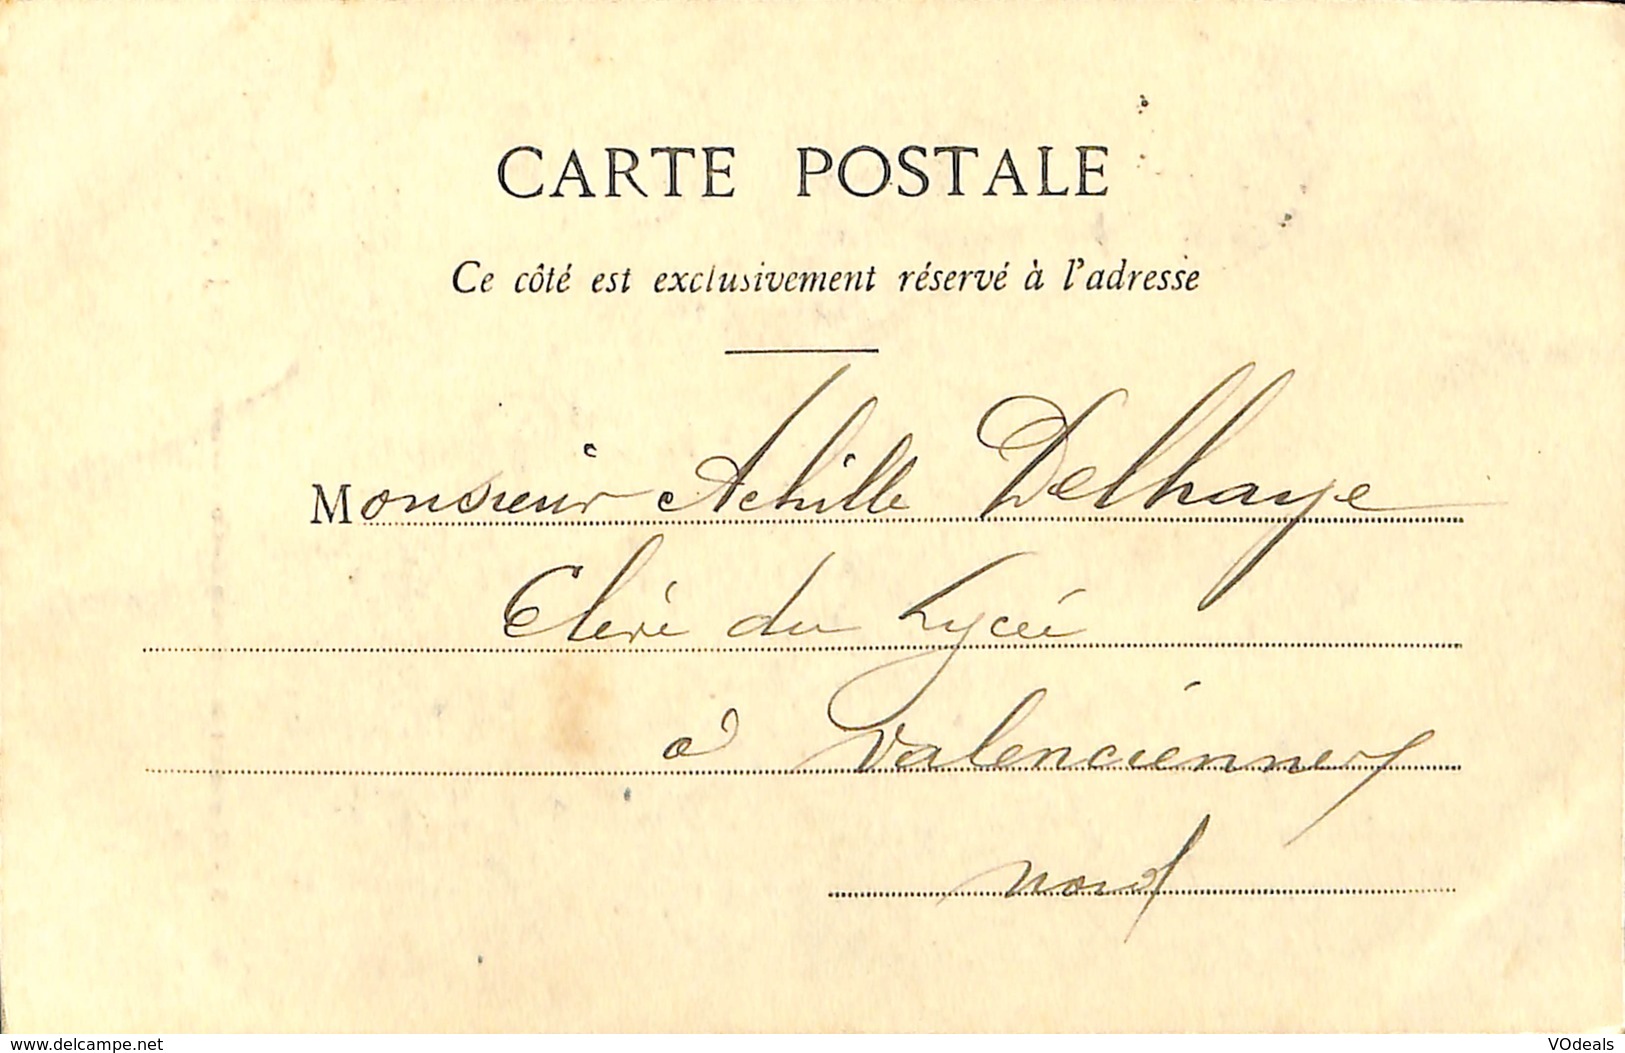 CARTE POSTALE
Ce côté est exclusivement réservé à l'adresse
Monsieur Achille Delhaye
Elève du Lycée
à Valenciennes
Nord
www.delcampe.net
VOdeals